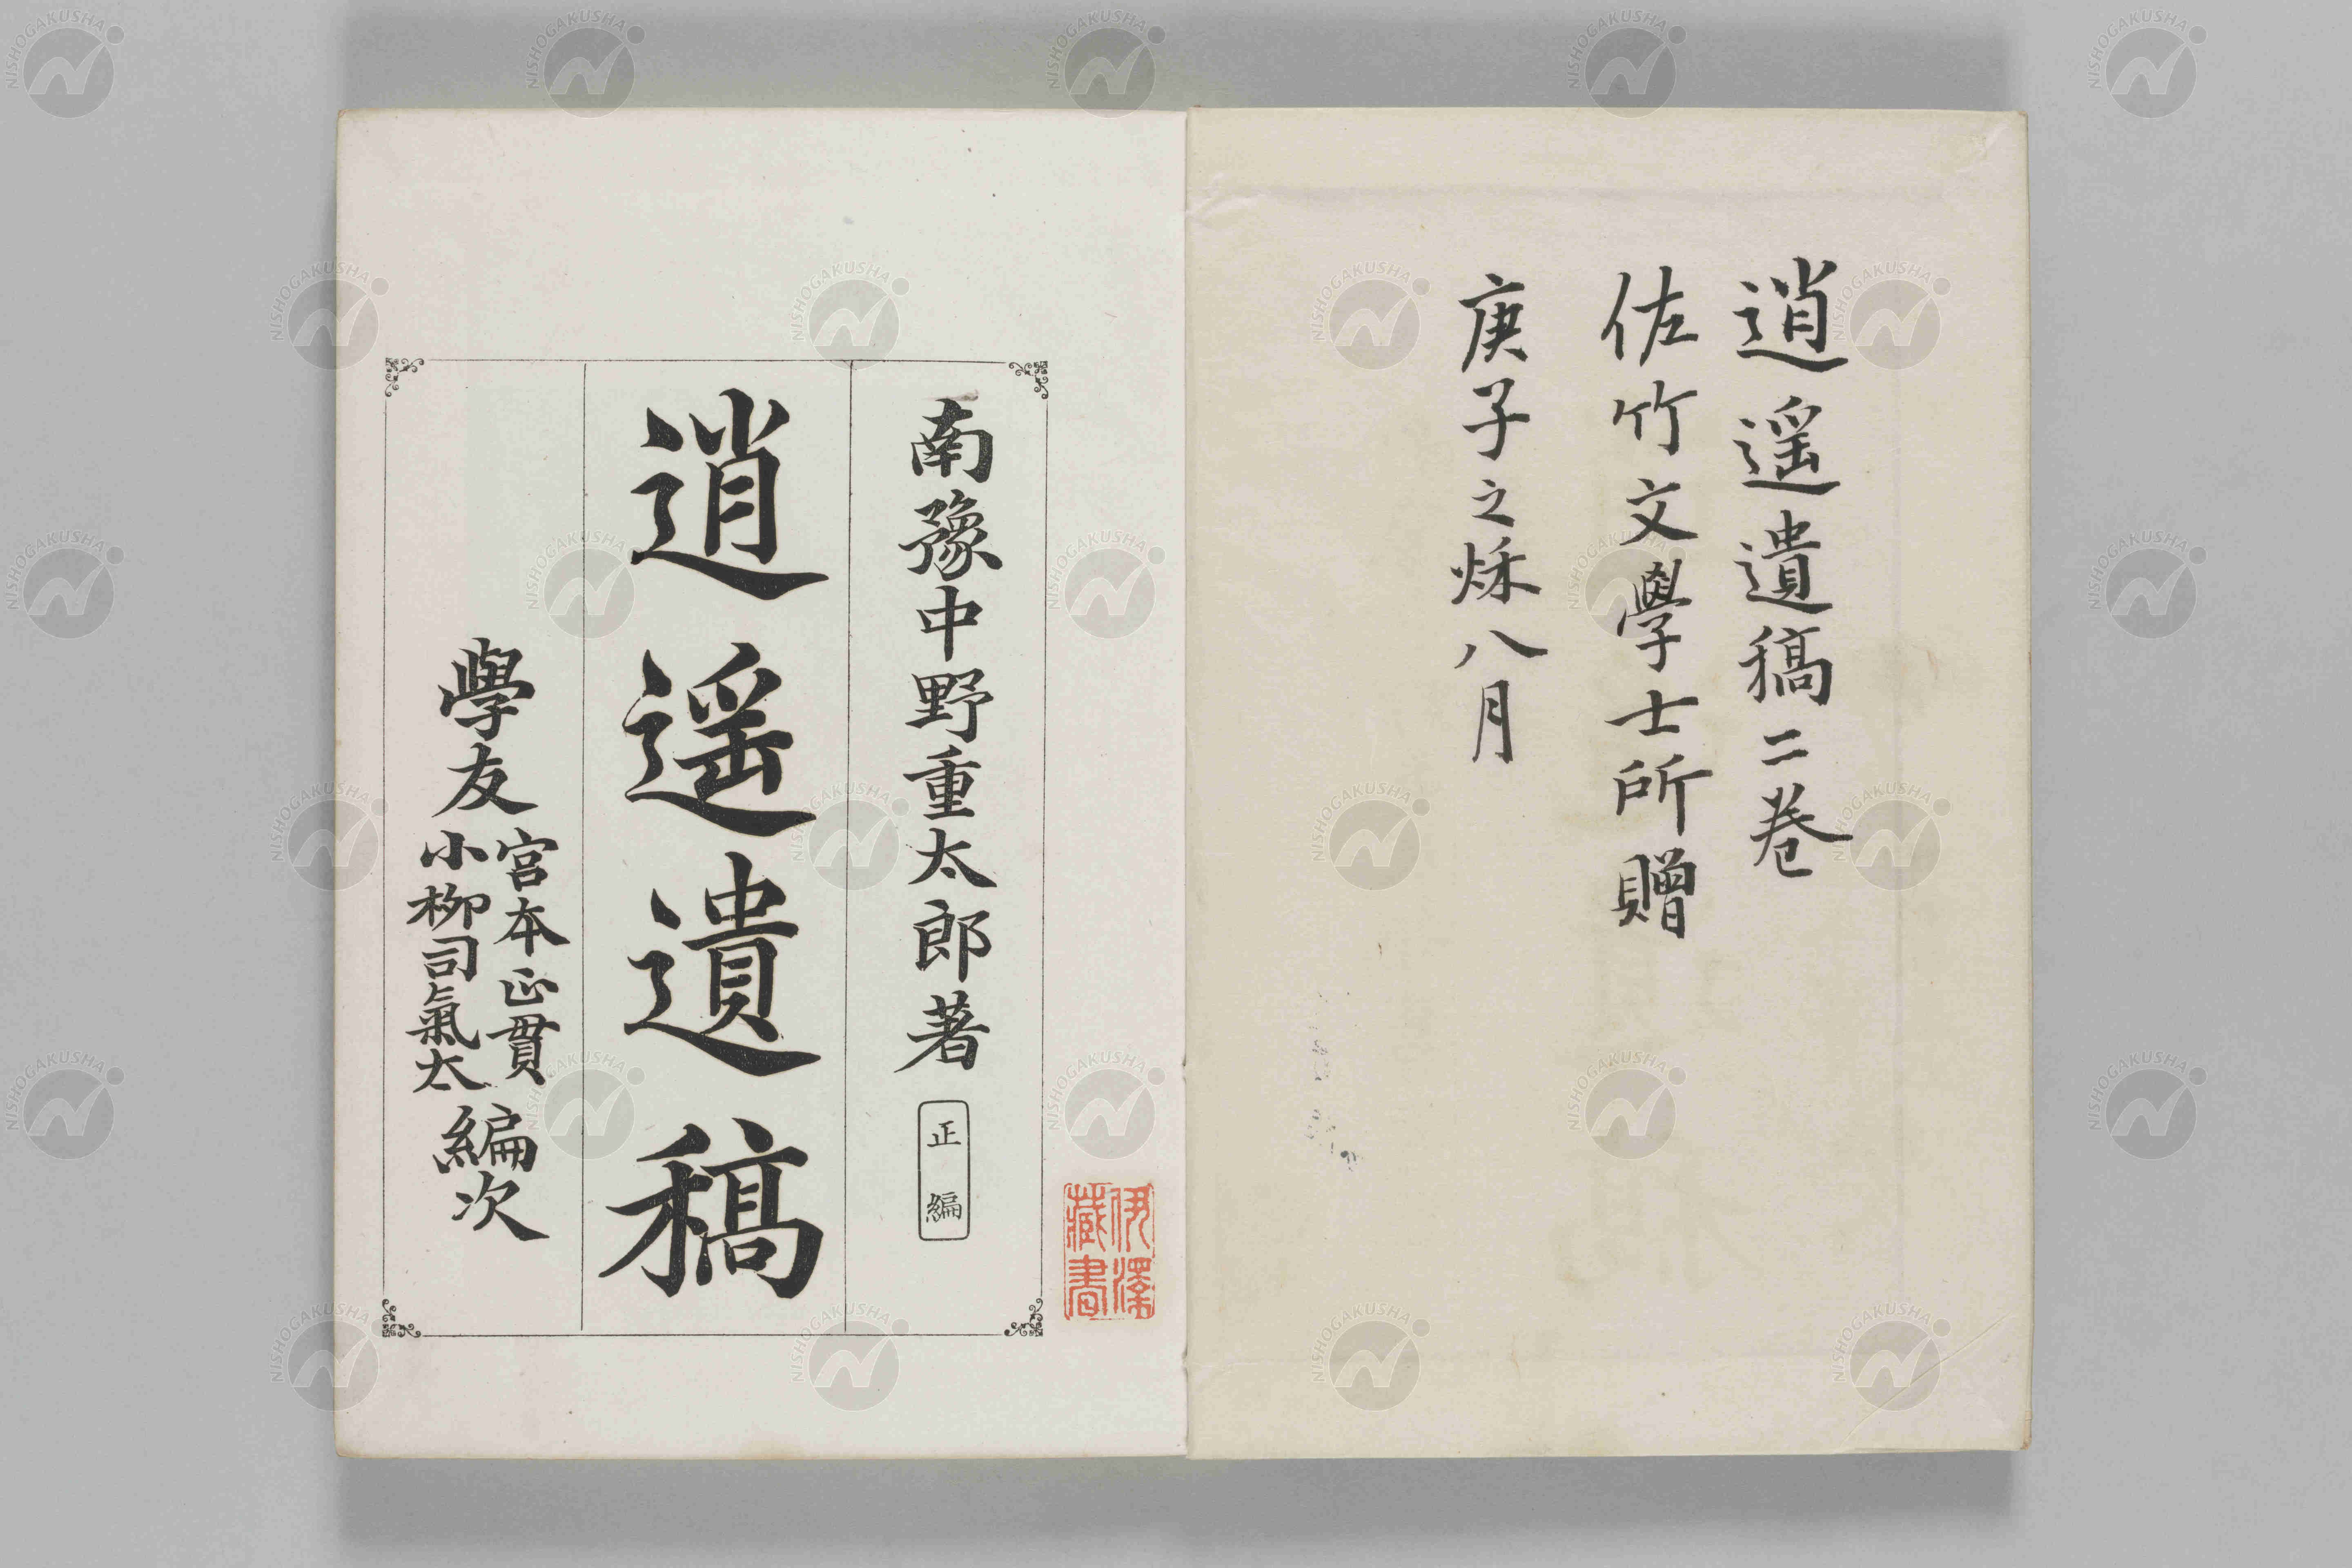 逍遥遺稿二卷
佐竹文學士所贈
庚子之秌八月
南豫中野重太郎著
正編
逍遥遺稿
學友
宮本正貫
小柳司氣太
編次
伊澤
藏書
NISHOGAKUSHA